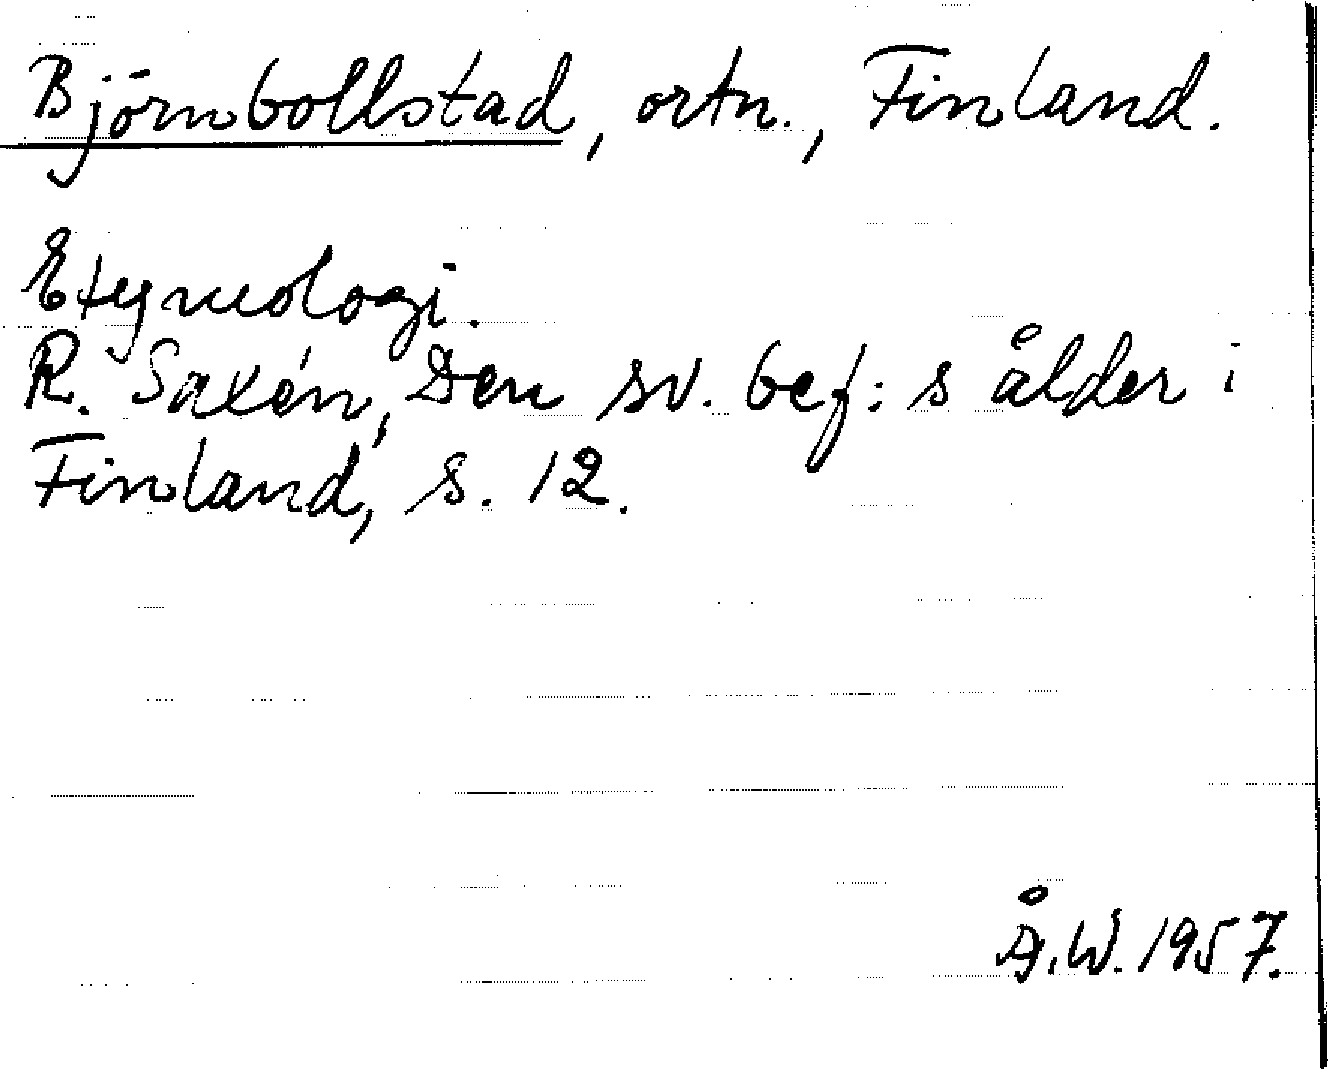 Björnbollstad, ortn., Finland.
Etymologi.
R. Saxén, Den sv. bef:s ålder i
Finland, s. 12.
Å.W. 1957.